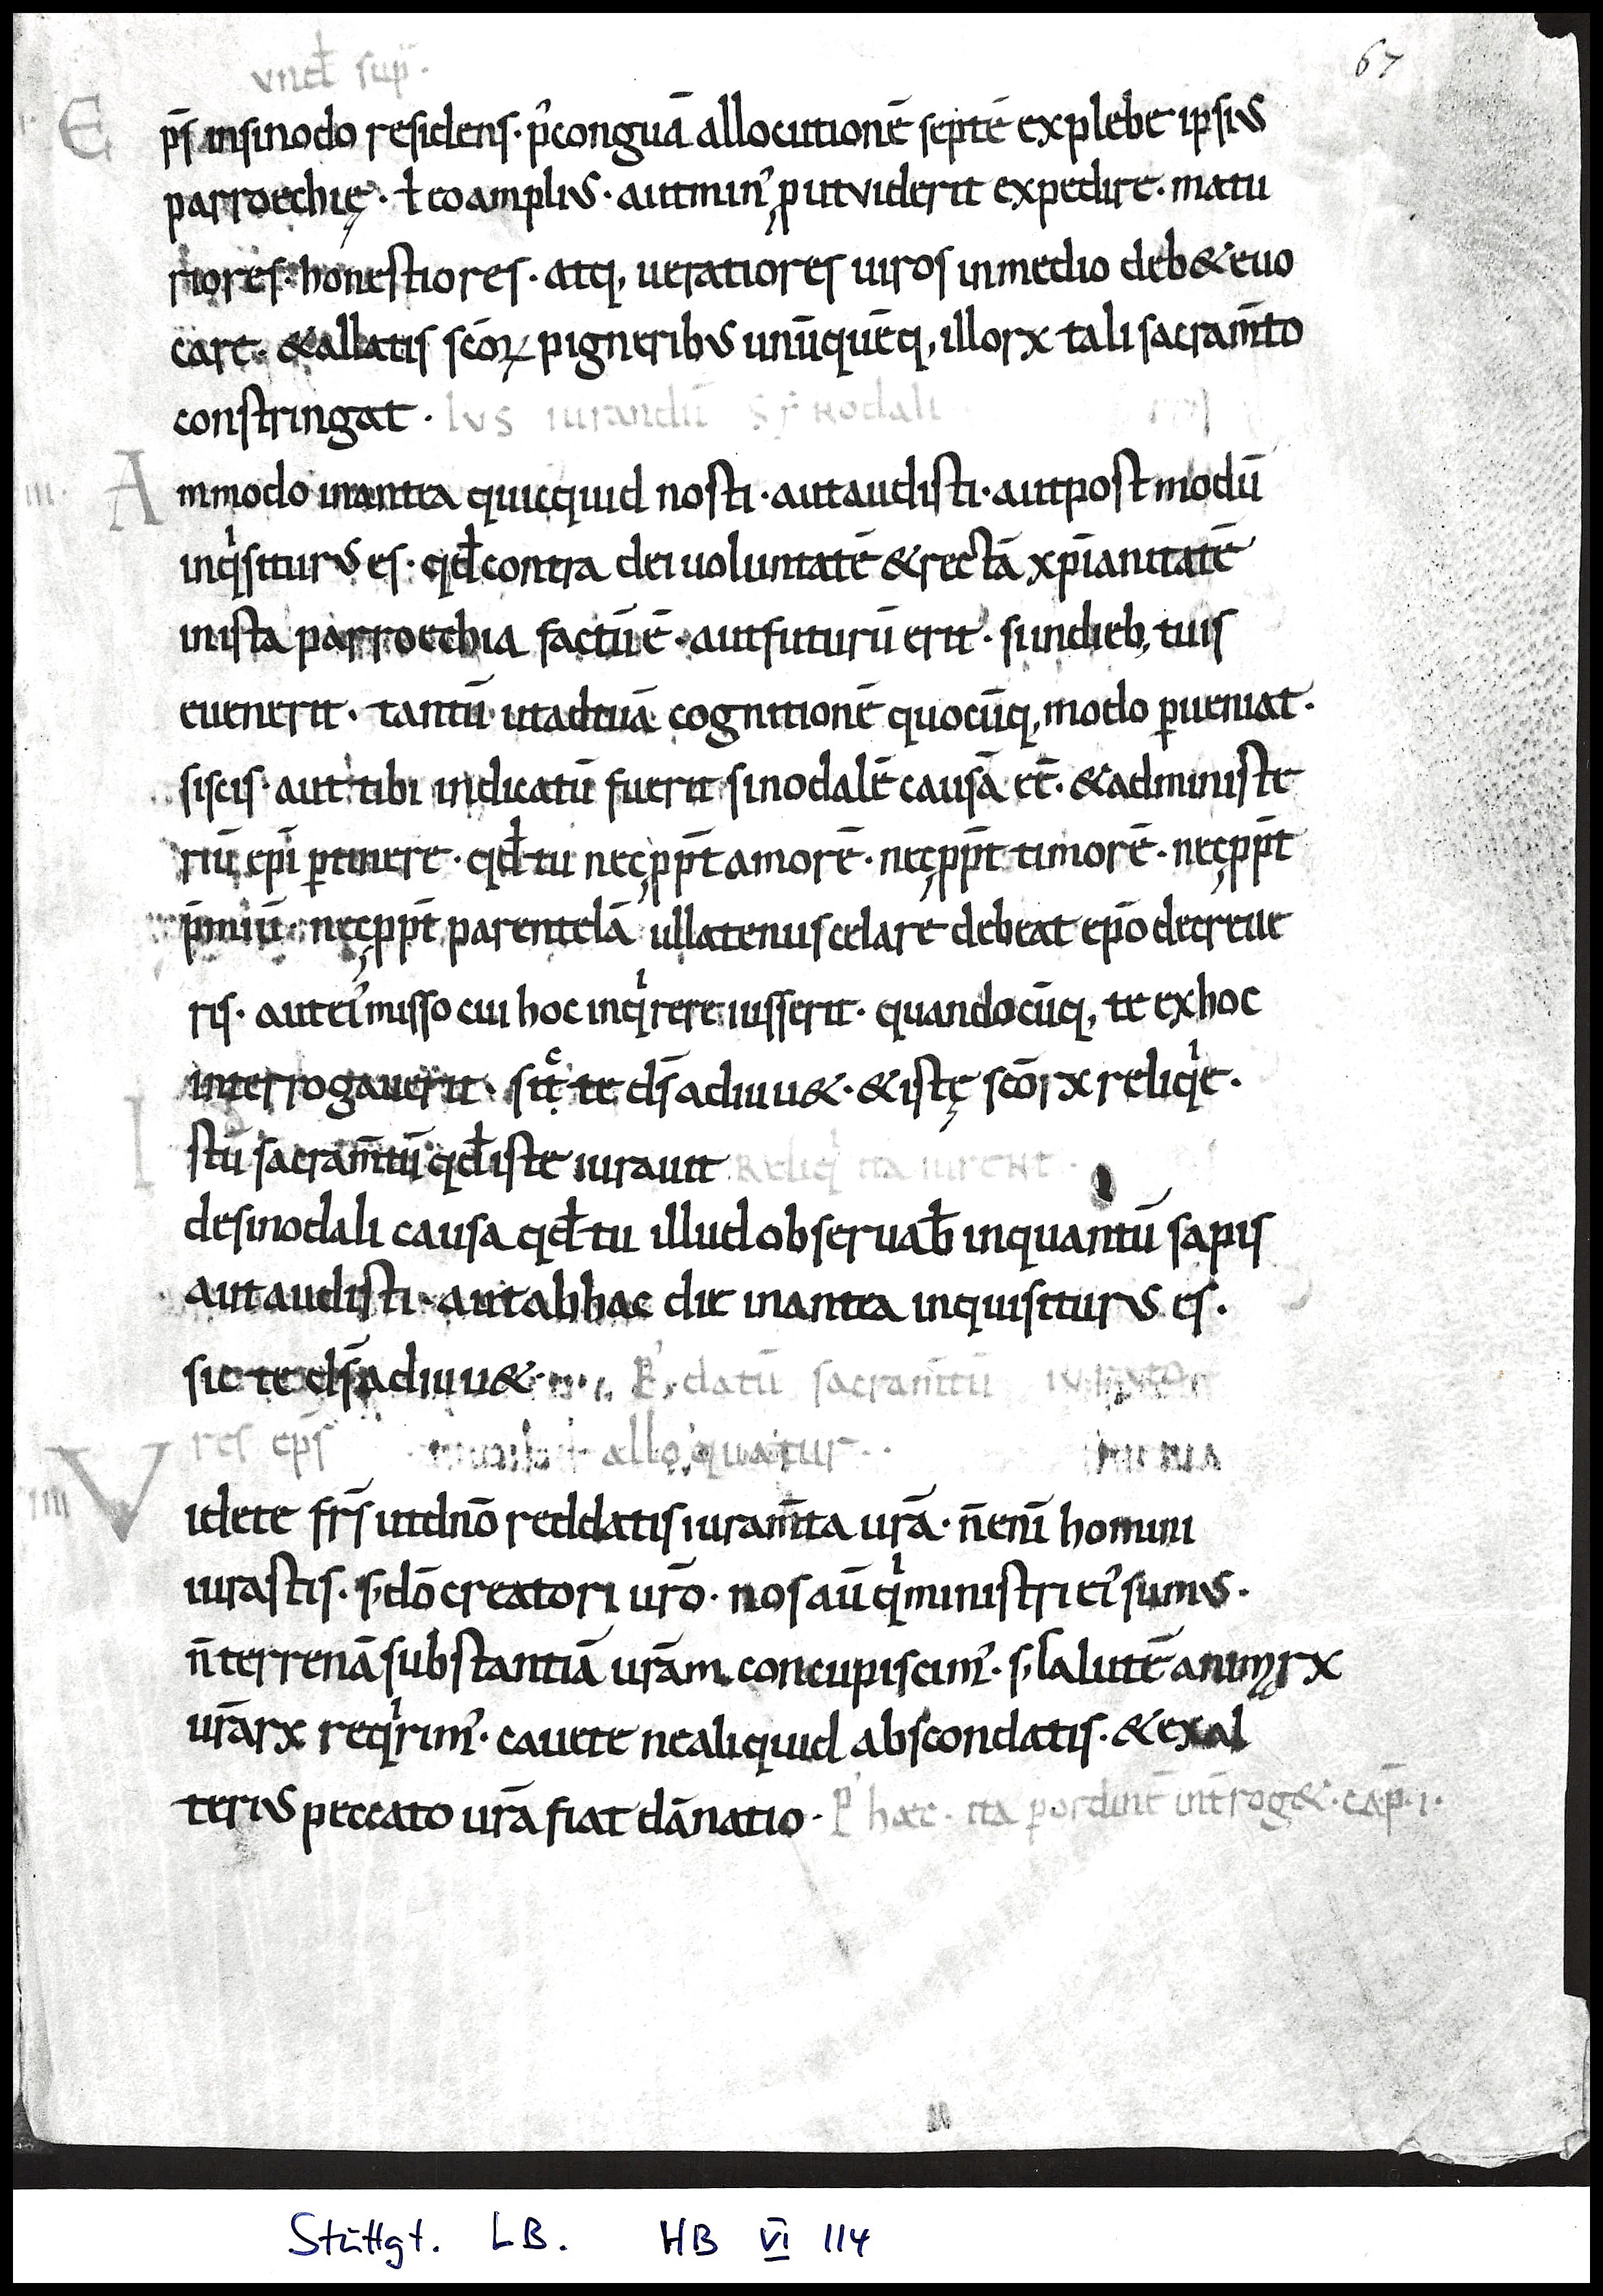 und̄ sup̄.
67
II. Ep̄s insinodo residens. p᾿congruā allocutionē septē explebe ipsius
parroechię. ł eo amplius. autmin᾿ ꝓutviderit expedire. matu
riores. honestiores. atq; ueratiores uiros inmedio deb&evo
care. &allatis sc̄oꝝ pigneribus unūquēq; illorx tali sacram̄to
constringat. Ius iurandū sỹnodali
III. Ammodo inantea quicquid nosti. autaudisti. autpostmodū
inqͥsiturus es. qd̄ contra dei uoluntatē &rectā xp̄ianitatē
inista parroechia factū ē. autfuturū erit. siindieb; tuis
evenerit. tantū utadtuā cognitionē quocūq; modo ꝑueniat.
siscis. aut tibi indicatū fuerit sinodalē causā eē. &administe
riū ep̄i ꝑtinere. qd̄ tu necꝓpt̄ amorē. necꝓpt̄ timorē. necꝓpt̄
p̄miū. necꝓpt̄ parentelā ullatenus celare debeat ep̄o decreue
ris. autei᾿ misso cui hoc inqͥrere iusserit. quandocūq; te exhoc
interrogauerit. sic te d̄s adiuu&. &istę sc̄orx reliqͥe.
Istū sacram̄tū qd̄ iste iurauit Reliqͥ ita iurent.
desinodali causa qd̄ tu illud observab̄ inquantū sapis
aut audisti. aut abhac die inantea inquisiturus es.
sic te d̄s adiuu&. P᾿ datū sacram̄tū iurato
res ep̄s alloquatur.
IIII Videte fr̄s utdn̄o reddatis iuram̄ta ur̄a. n̄ enī homini
iurastis. s; dō creatori ur̄o. nos aū qͥ ministri ei᾿ sumus.
n̄ terrenā substantiā ur̄am concupiscim᾿. s; salutē animarx
ur̄arx reqͥrim᾿. cavete nealiquid abscondatis. &exal
terius peccato ur̄a fiat dānatio. P᾿ hæc. ita ꝑordinē int̄rog&. cap̄. I.
Stuttgt. LB. HB VI 114